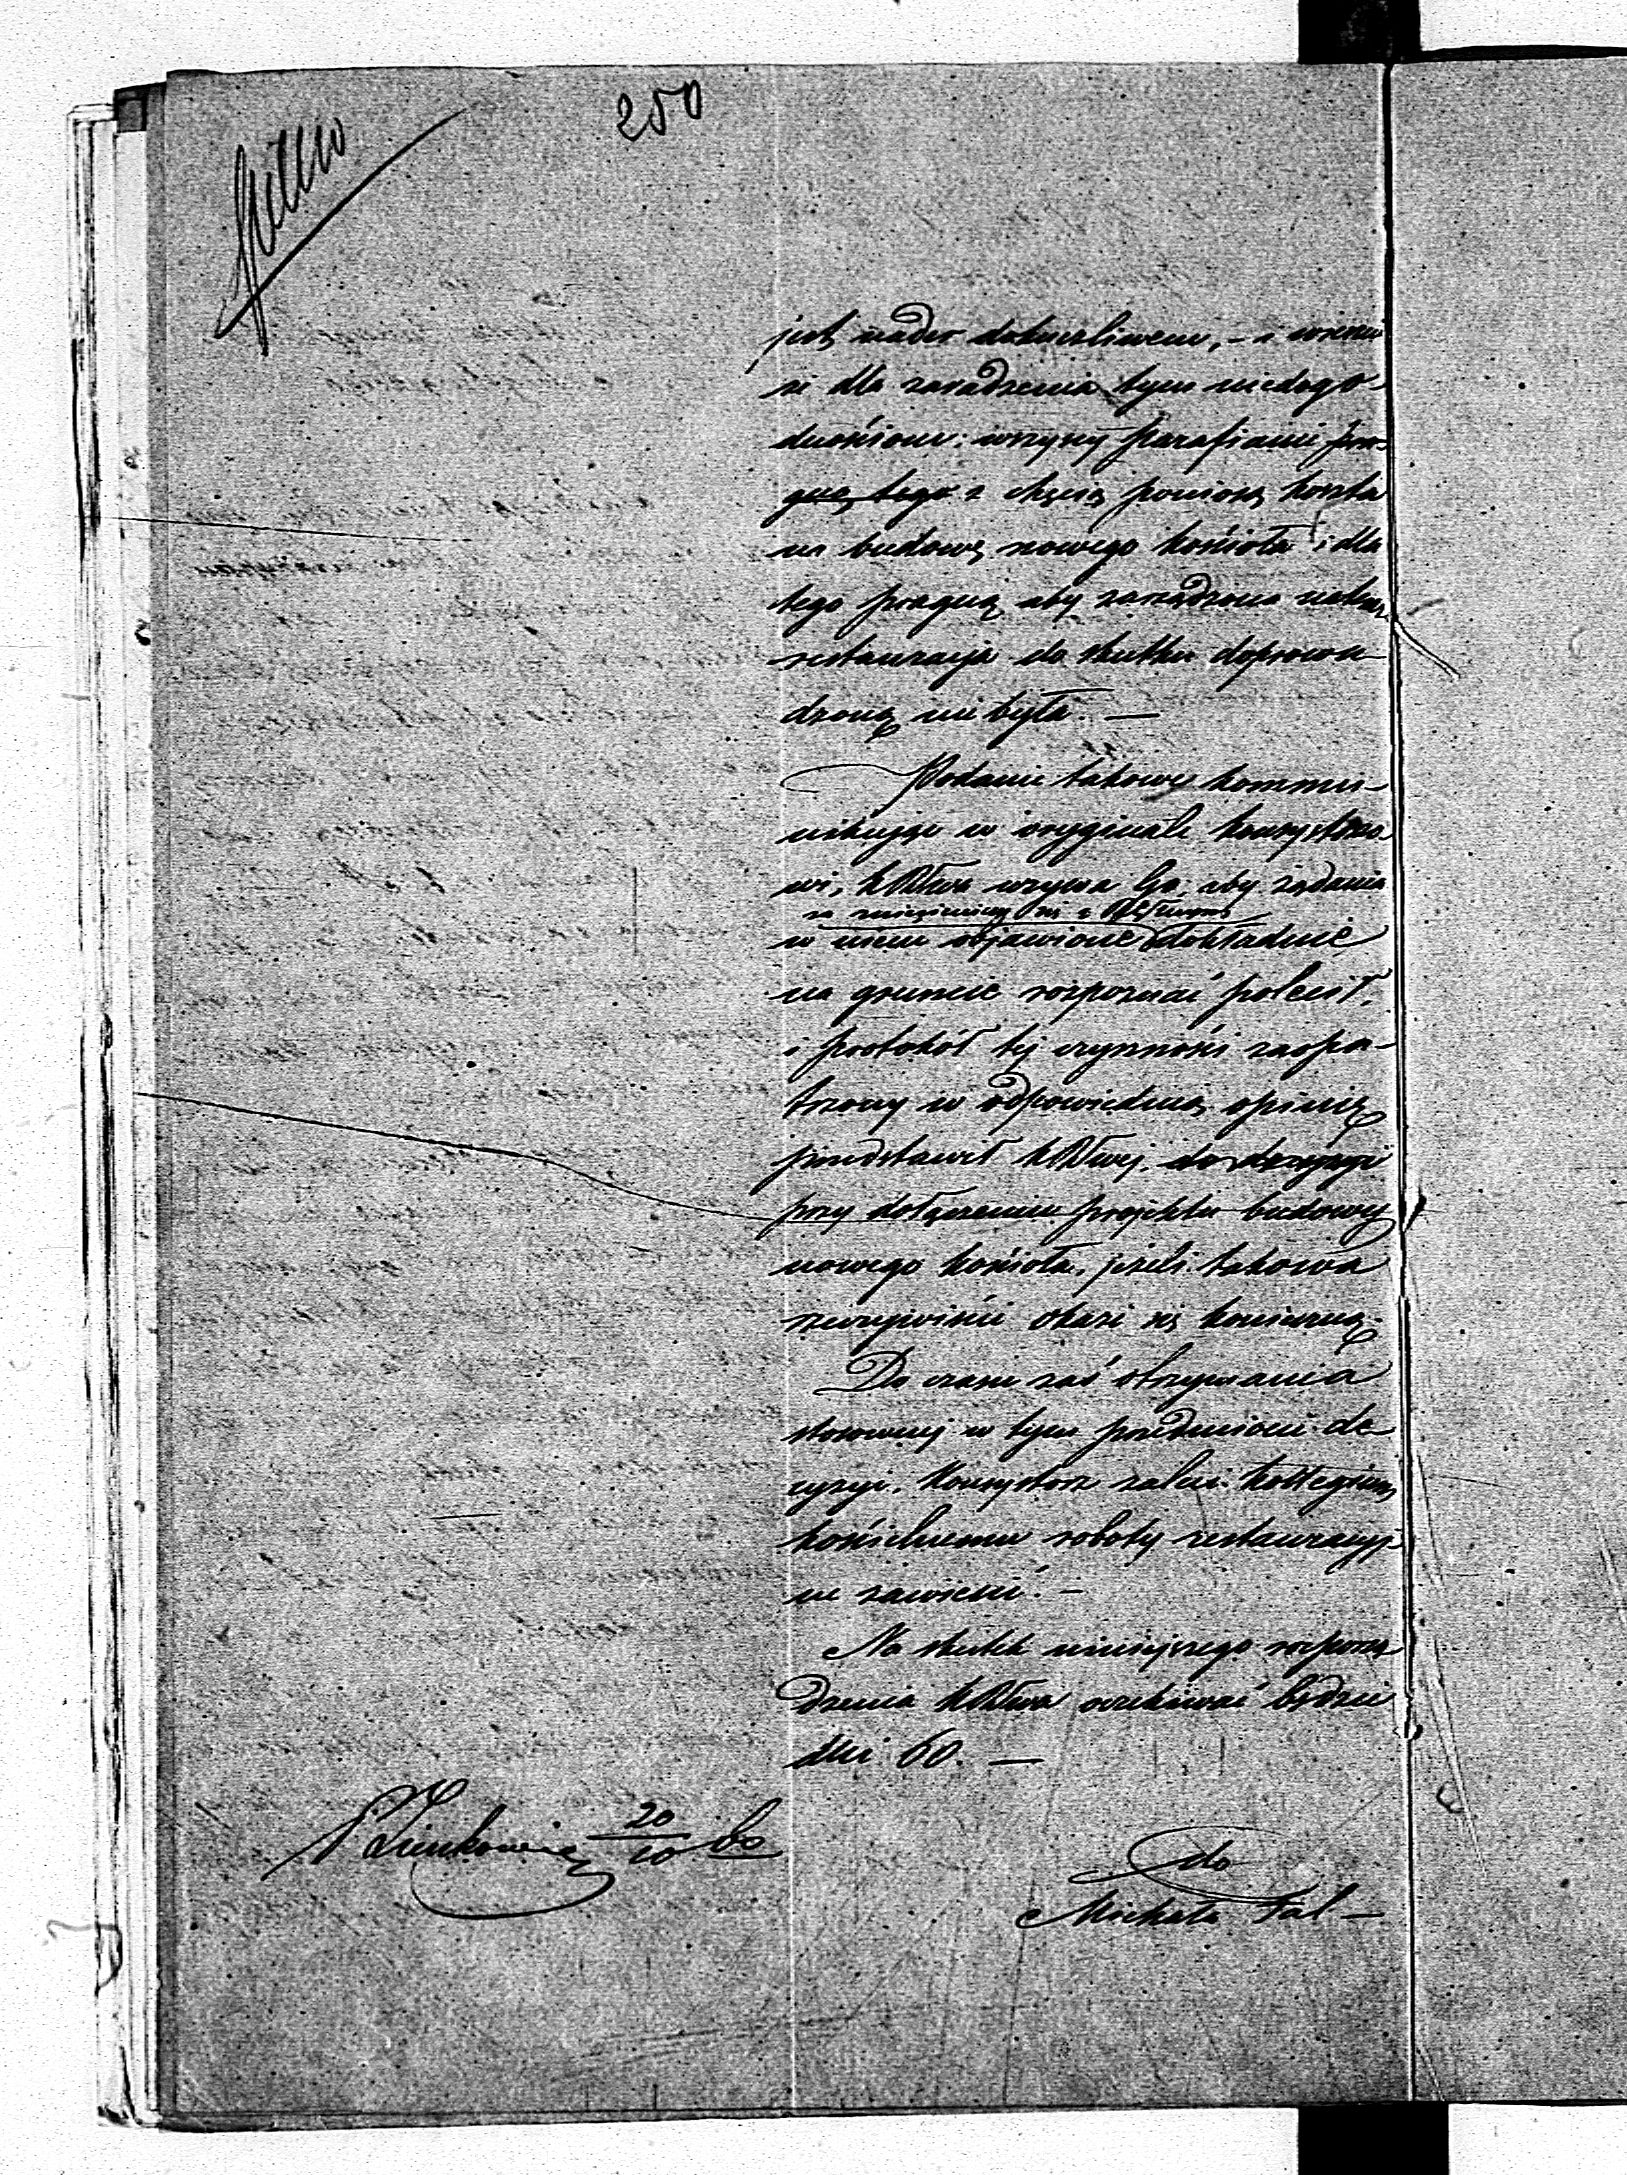 250
jest nader dokuczliwem, – a wreszcie
że dla zaradzenia tym niedogo-
dnościom: wszyscy parafianie pra-
gną tego z chęcią poniosą koszta
na budowę nowego kościoła i dla
tego pragną aby zarządzona
restauracja do skutku doprowa-
dzoną nie była. —
Podanie takowe kommu-
nikując w oryginale konsystorzo
wi, wzywa Go, aby żądania
za zniesieniem się z
w niem objawione dokładnie
na gruncie rozpoznać polecił,
i protokół tej czynności zaopa-
trzony w odpowiednią opinią
przedstawił do decyzyi
przy dołączeniu projektu budowy
nowego kościoła, jeżeli takowa
rzeczywiście okaże się konieczną.
Do czasu zaś otrzymania
stosownej w tym przedmiocie de
cyzyi, Konsystorz zaleci kollegium
kościelnemu roboty restauracyj-
ne zawiesić. –
Na skutek niniejszego rozporzą
dzenia oczekiwać będzie
dni 60. —
20/10 60
do
Michała Fal –